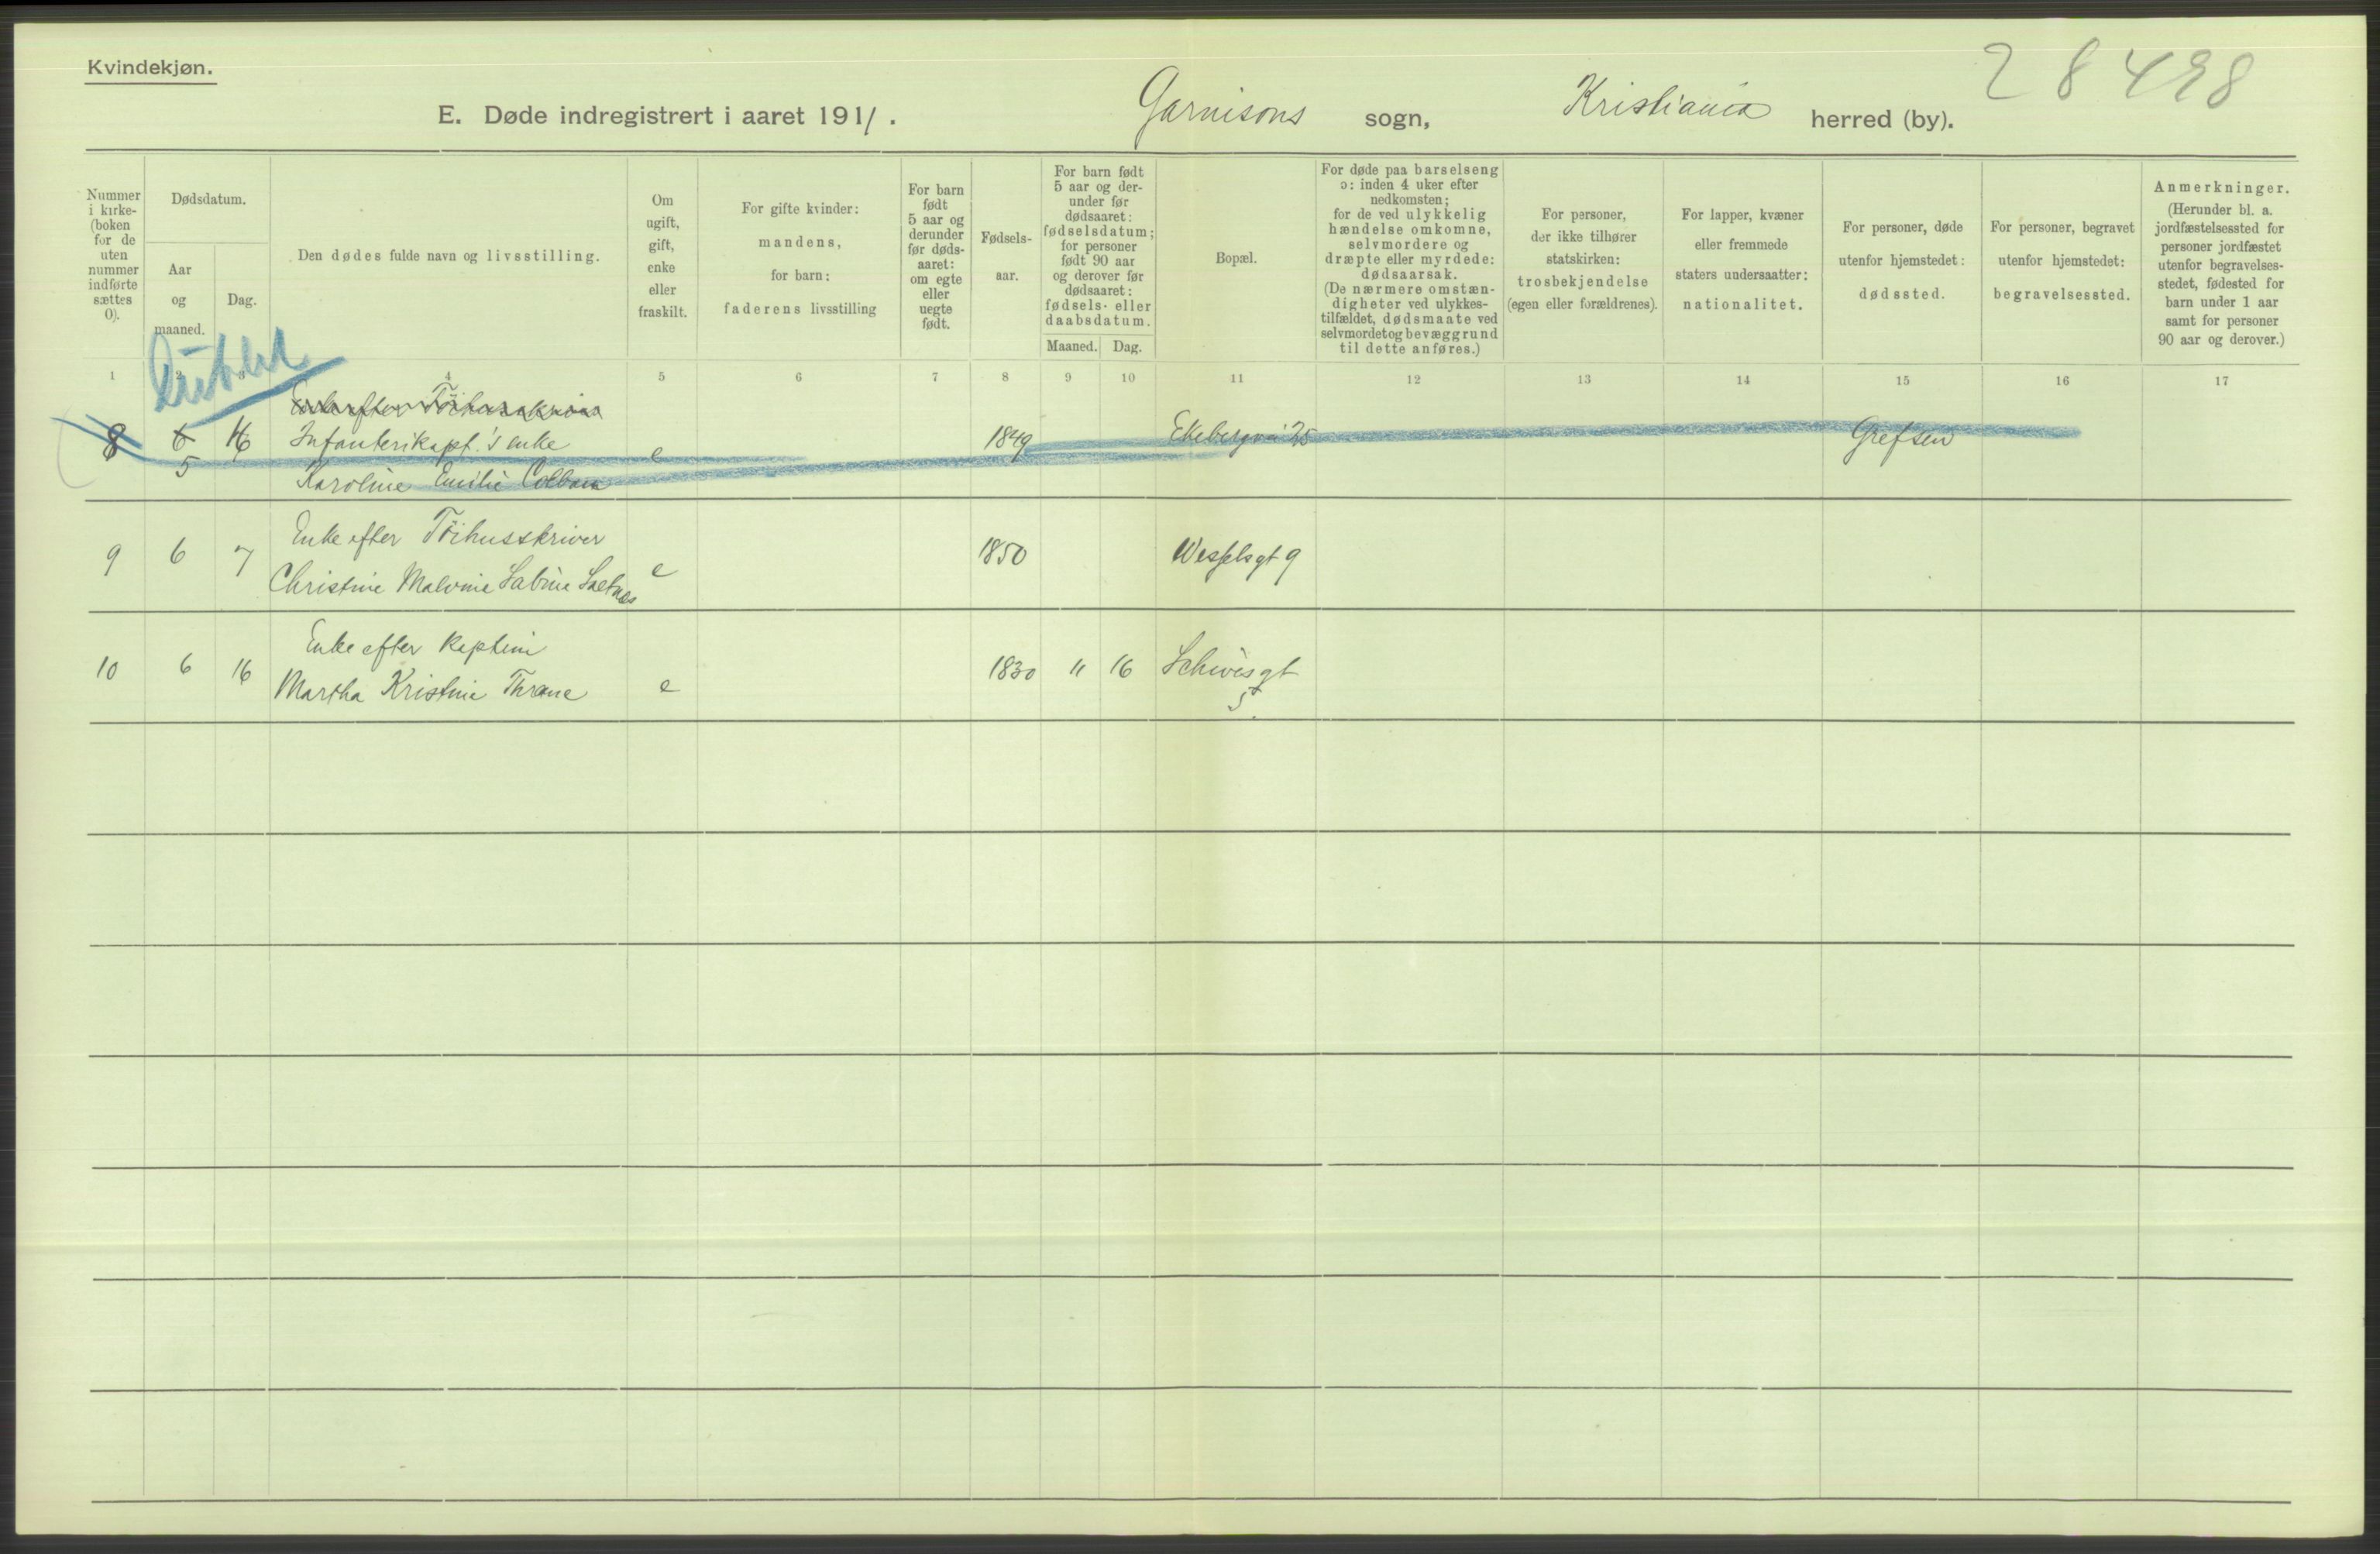 Kvindekjøn.
28498
E. Døde indregistrert i aaret 1911.
Garnisons sogn, Kristiania herred (by).
Nummer
i kirke-
(boken
for de
uten
nummer
indførte
sættes
0).
Dødsdatum.
Aar
og
maaned.
Dag.
Den dødes fulde navn og livsstilling.
Om
ugift,
gift,
enke
eller
fraskilt.
For gifte kvinder:
mandens,
for barn:
faderens livsstilling
For barn
født
5 aar og
derunder
før døds-
aaret:
om egte
eller
uegte
født.
Fødsels-
aar.
For barn født
5 aar og der-
under før
dødsaaret:
fødselsdatum;
for personer
født 90 aar
og derover før
dødsaaret:
fødsels- eller
daabsdatum.
Maaned. Dag.
Bopæl.
For døde paa barselseng
ɔ: inden 4 uker efter
nedkomsten;
for de ved ulykkelig
hændelse omkomne,
selvmordere og
dræpte eller myrdede:
dødsaarsak.
(De nærmere omstæn-
digheter ved ulykkes-
tilfældet, dødsmaate ved
selvmord et og bevæggrund
til dette anføres.)
For personer,
der ikke tilhører
statskirken:
trosbekjendelse
(egen eller forældrenes).
For lapper, kvæner
eller fremmede
staters undersaatter:
nationalitet.
For personer, døde
utenfor hjemstedet:
dødssted.
For personer, begravet
utenfor hjemstedet:
begravelsessted.
Anmerkninger.
(Herunder bl. a.
jordfæstelsessted for
personer jordfæstet
utenfor begravelses-
stedet, fødested for
barn under 1 aar
samt for personer
90 aar og derover.)
1 2 3 4 5 6 7 8 9 10 11 12 13 14 15 16 17
Enke efter Töihusskriver
8 6 16 Infanterikapt.'s enke e 1849 Ekebergvei 25 Grefsen
5 Karoline Emilie Colban
Enke efter Töihusskriver
9 6 7 Christine Malvine Sabine Saetnes e 1850 Wesselsgt 9
Enke efter Kaptein
10 6 16 Martha Kristine Thrane e 1830 " 16 Schwèsgt
5.